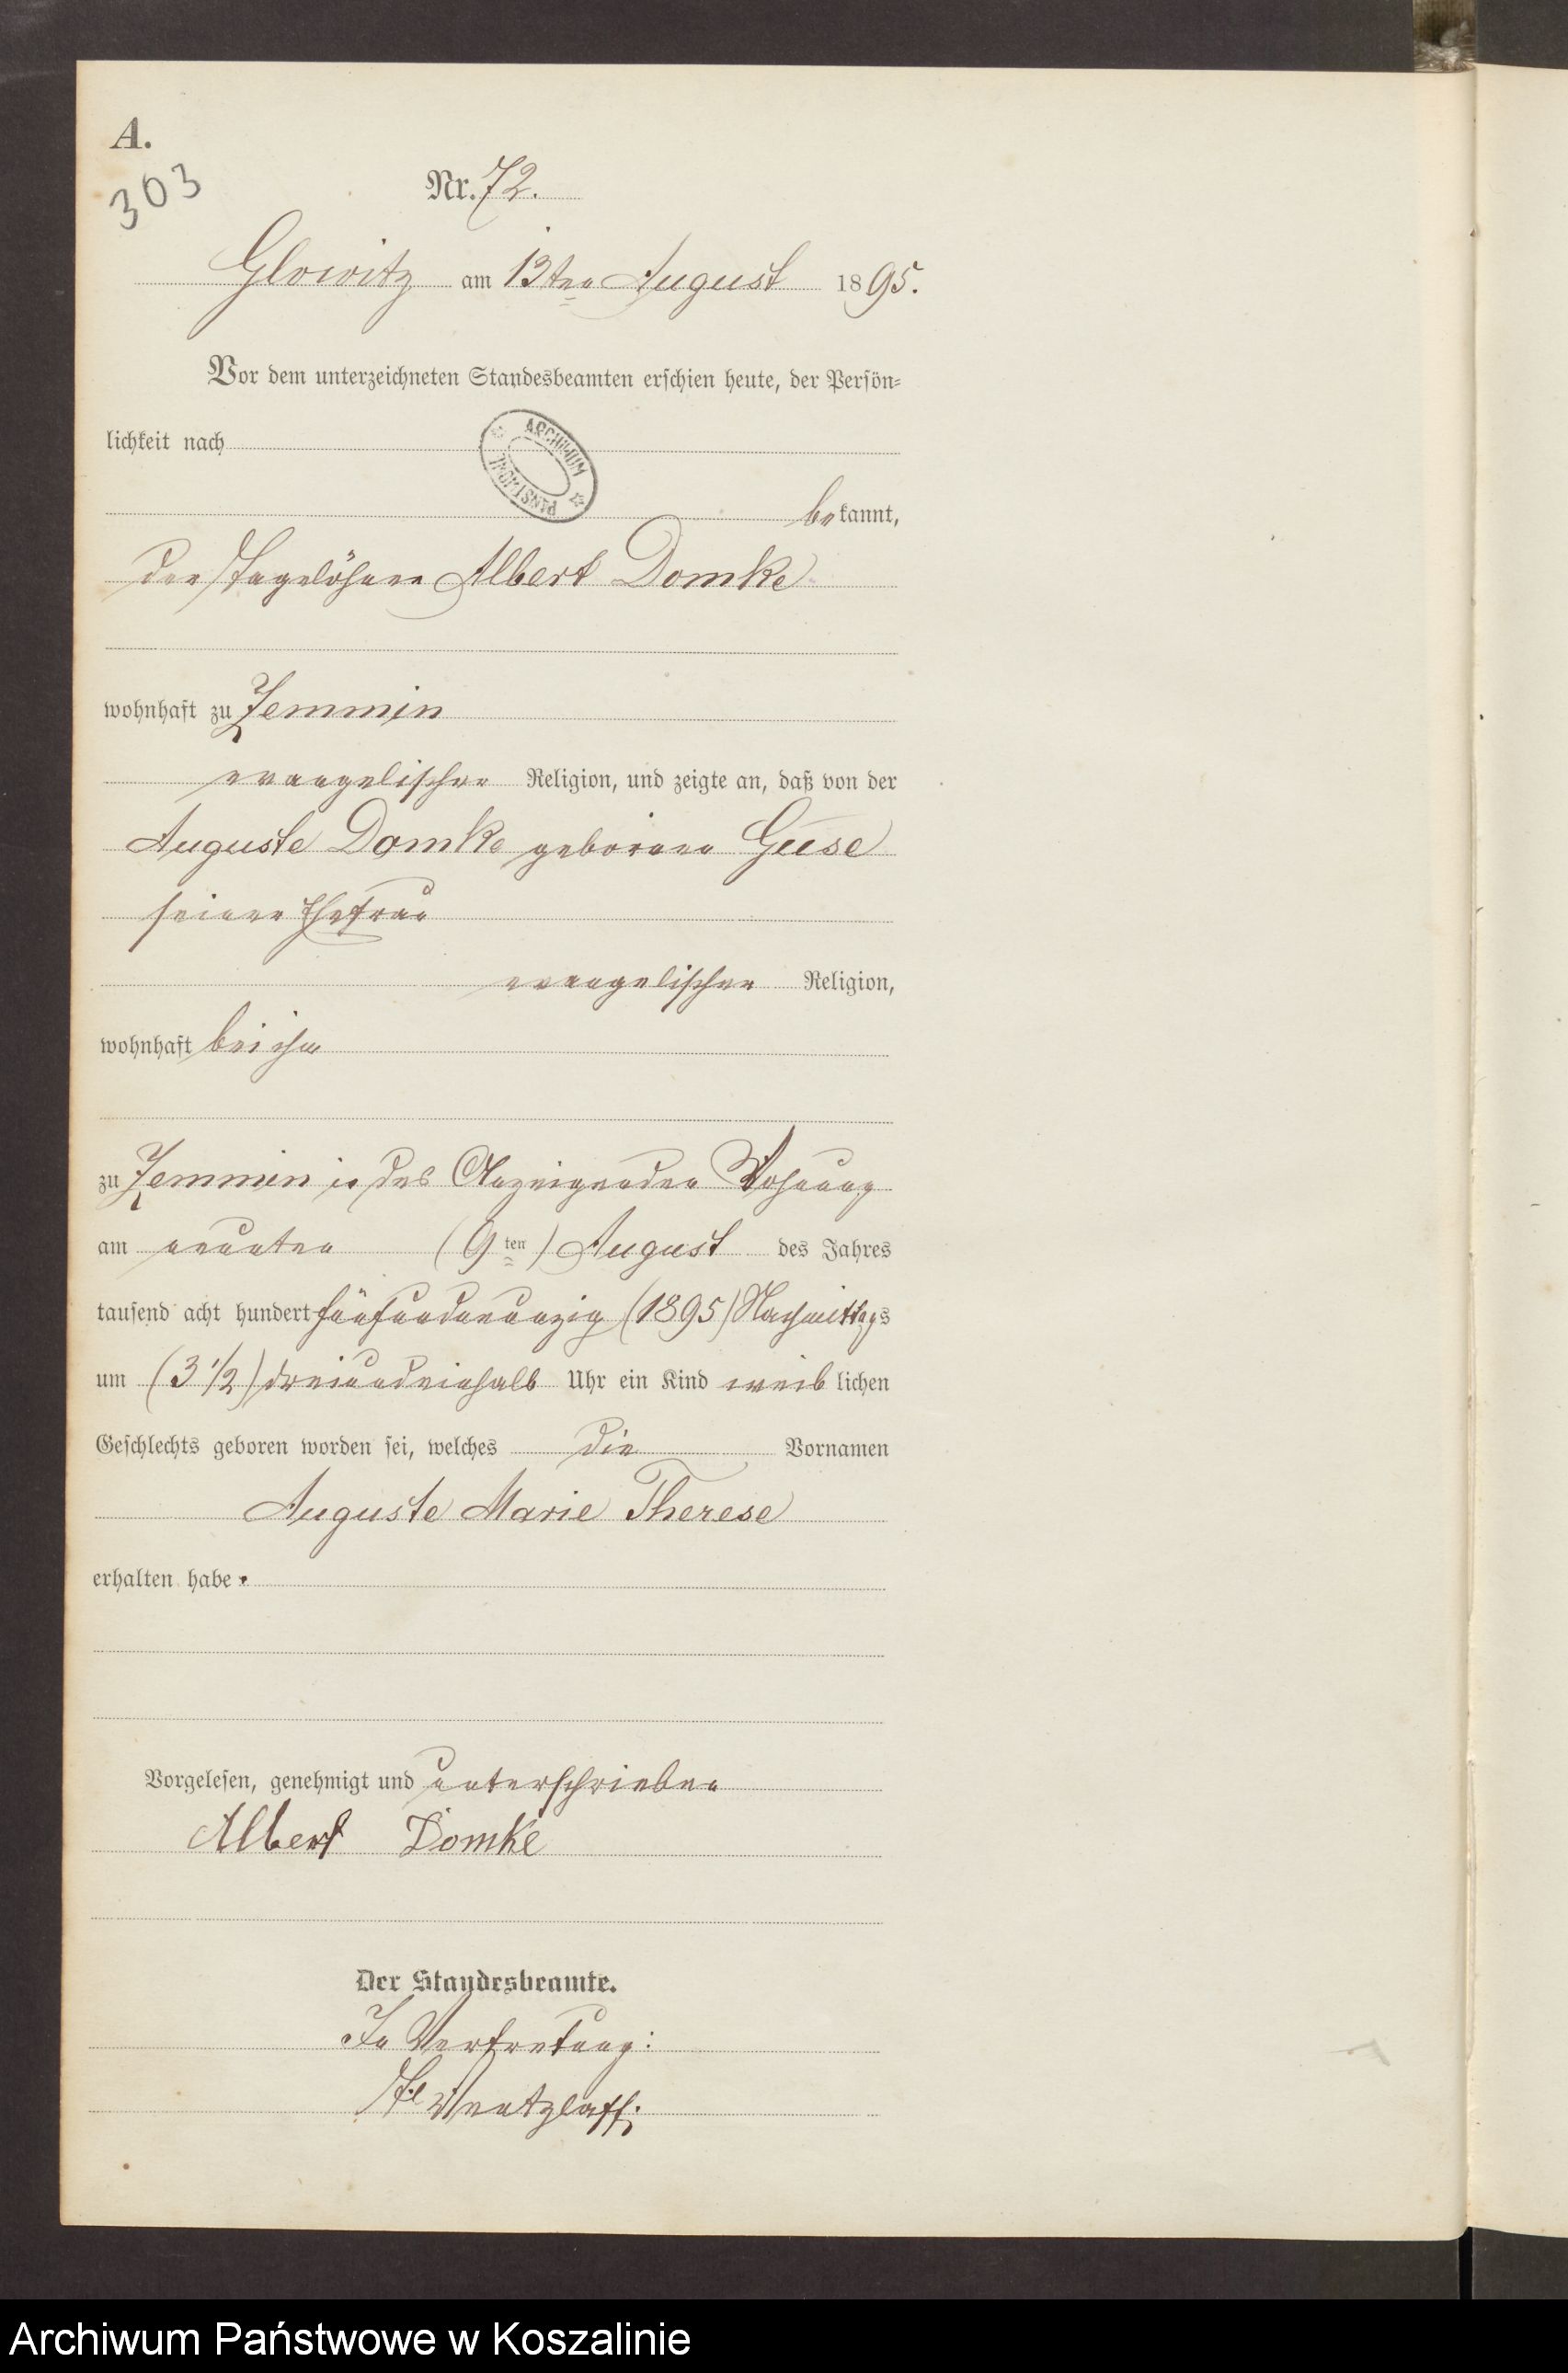 A.
303
Nr. 72.
Glowitz am 13ten August 1895.
Vor dem unterzeichneten Standesbeamten erschien heute, der Persön-
lichkeit nach
ARCHIWUM
bekannt,
der Tagelöhner Albert Domke
wohnhaft zu Zemmin
evangelischer Religion, und zeigte an, daß von der
Auguste Domke geborene Guse
seiner Ehefrau
evangelischer Religion,
wohnhaft bei ihm
zu Zemmin in des Anzeigenden Wohnung
am neunten (9ten) August des Jahres
tausend acht hundert fünfundneunzig (1895) Nachmittags
um (3 1/2) dreiundeinhalb Uhr ein Kind weiblichen
Geschlechts geboren worden sei, welches die Vornamen
Auguste Marie Therese
erhalten habe.
Vorgelesen, genehmigt und unterschrieben
Albert Domke
Der Standesbeamte.
In Vertretung:
Wentzlaff.
Archiwum Państwowe w Koszalinie